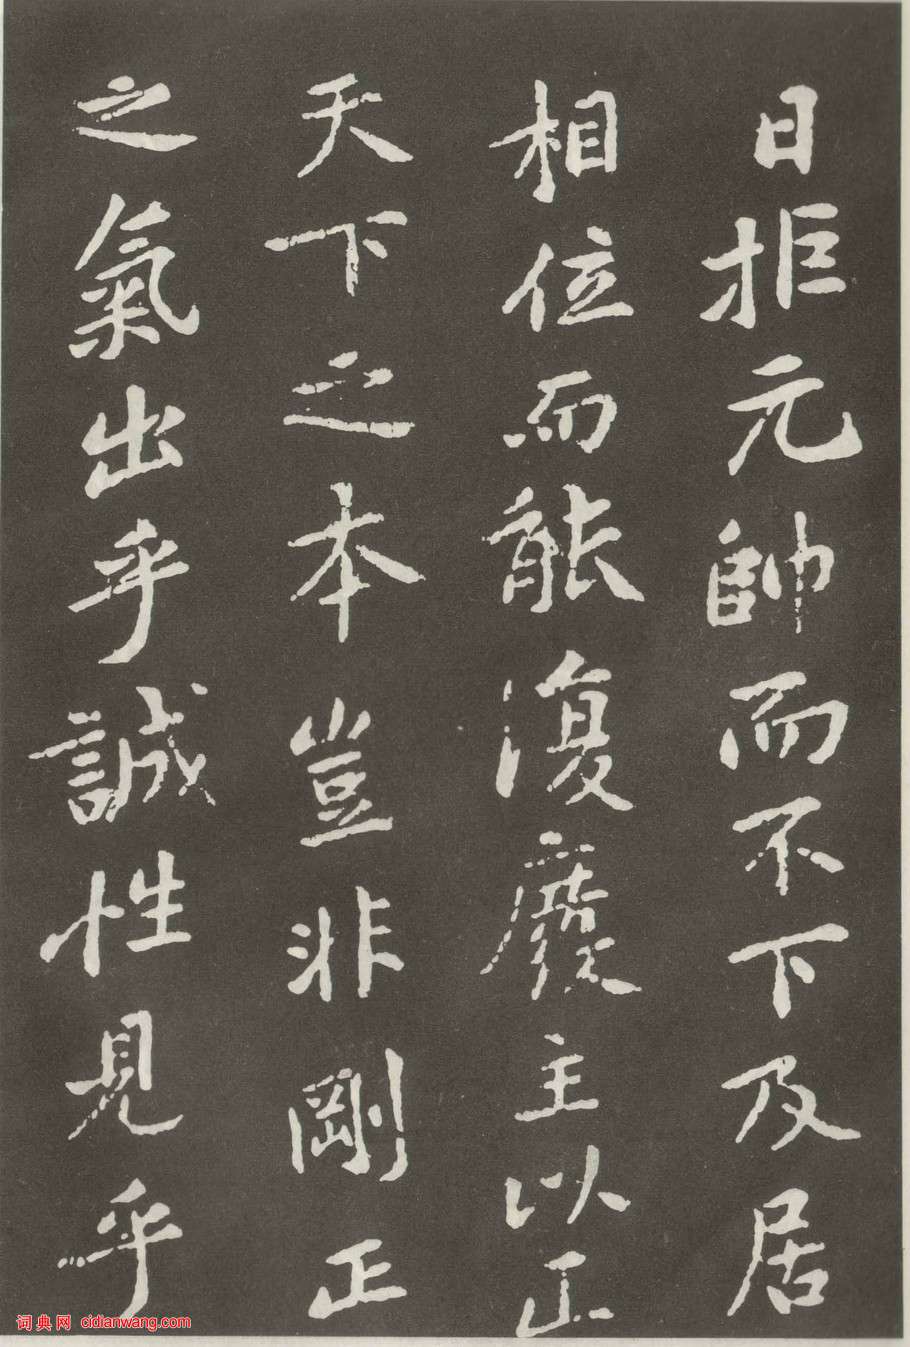 日拒元帥而不下及居
相位而能復廢主以正
天下之本豈非剛正
之氣出乎誠性見乎
词典网 cidianwang.com